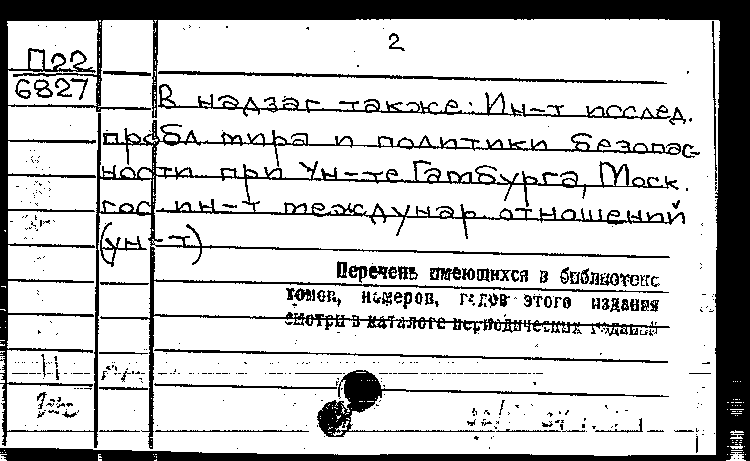 2
П22
6827
В надзаг также: Ин-т исслед.
пробл мира и политики безопас-
ности при Ун-те Гамбурга, Моск.
гос ин-т междунар отношений
(ун-т)
Перечень имеющихся в библиотеке
томов, номеров, годов этого издания
смотри в каталоге периодических изданий